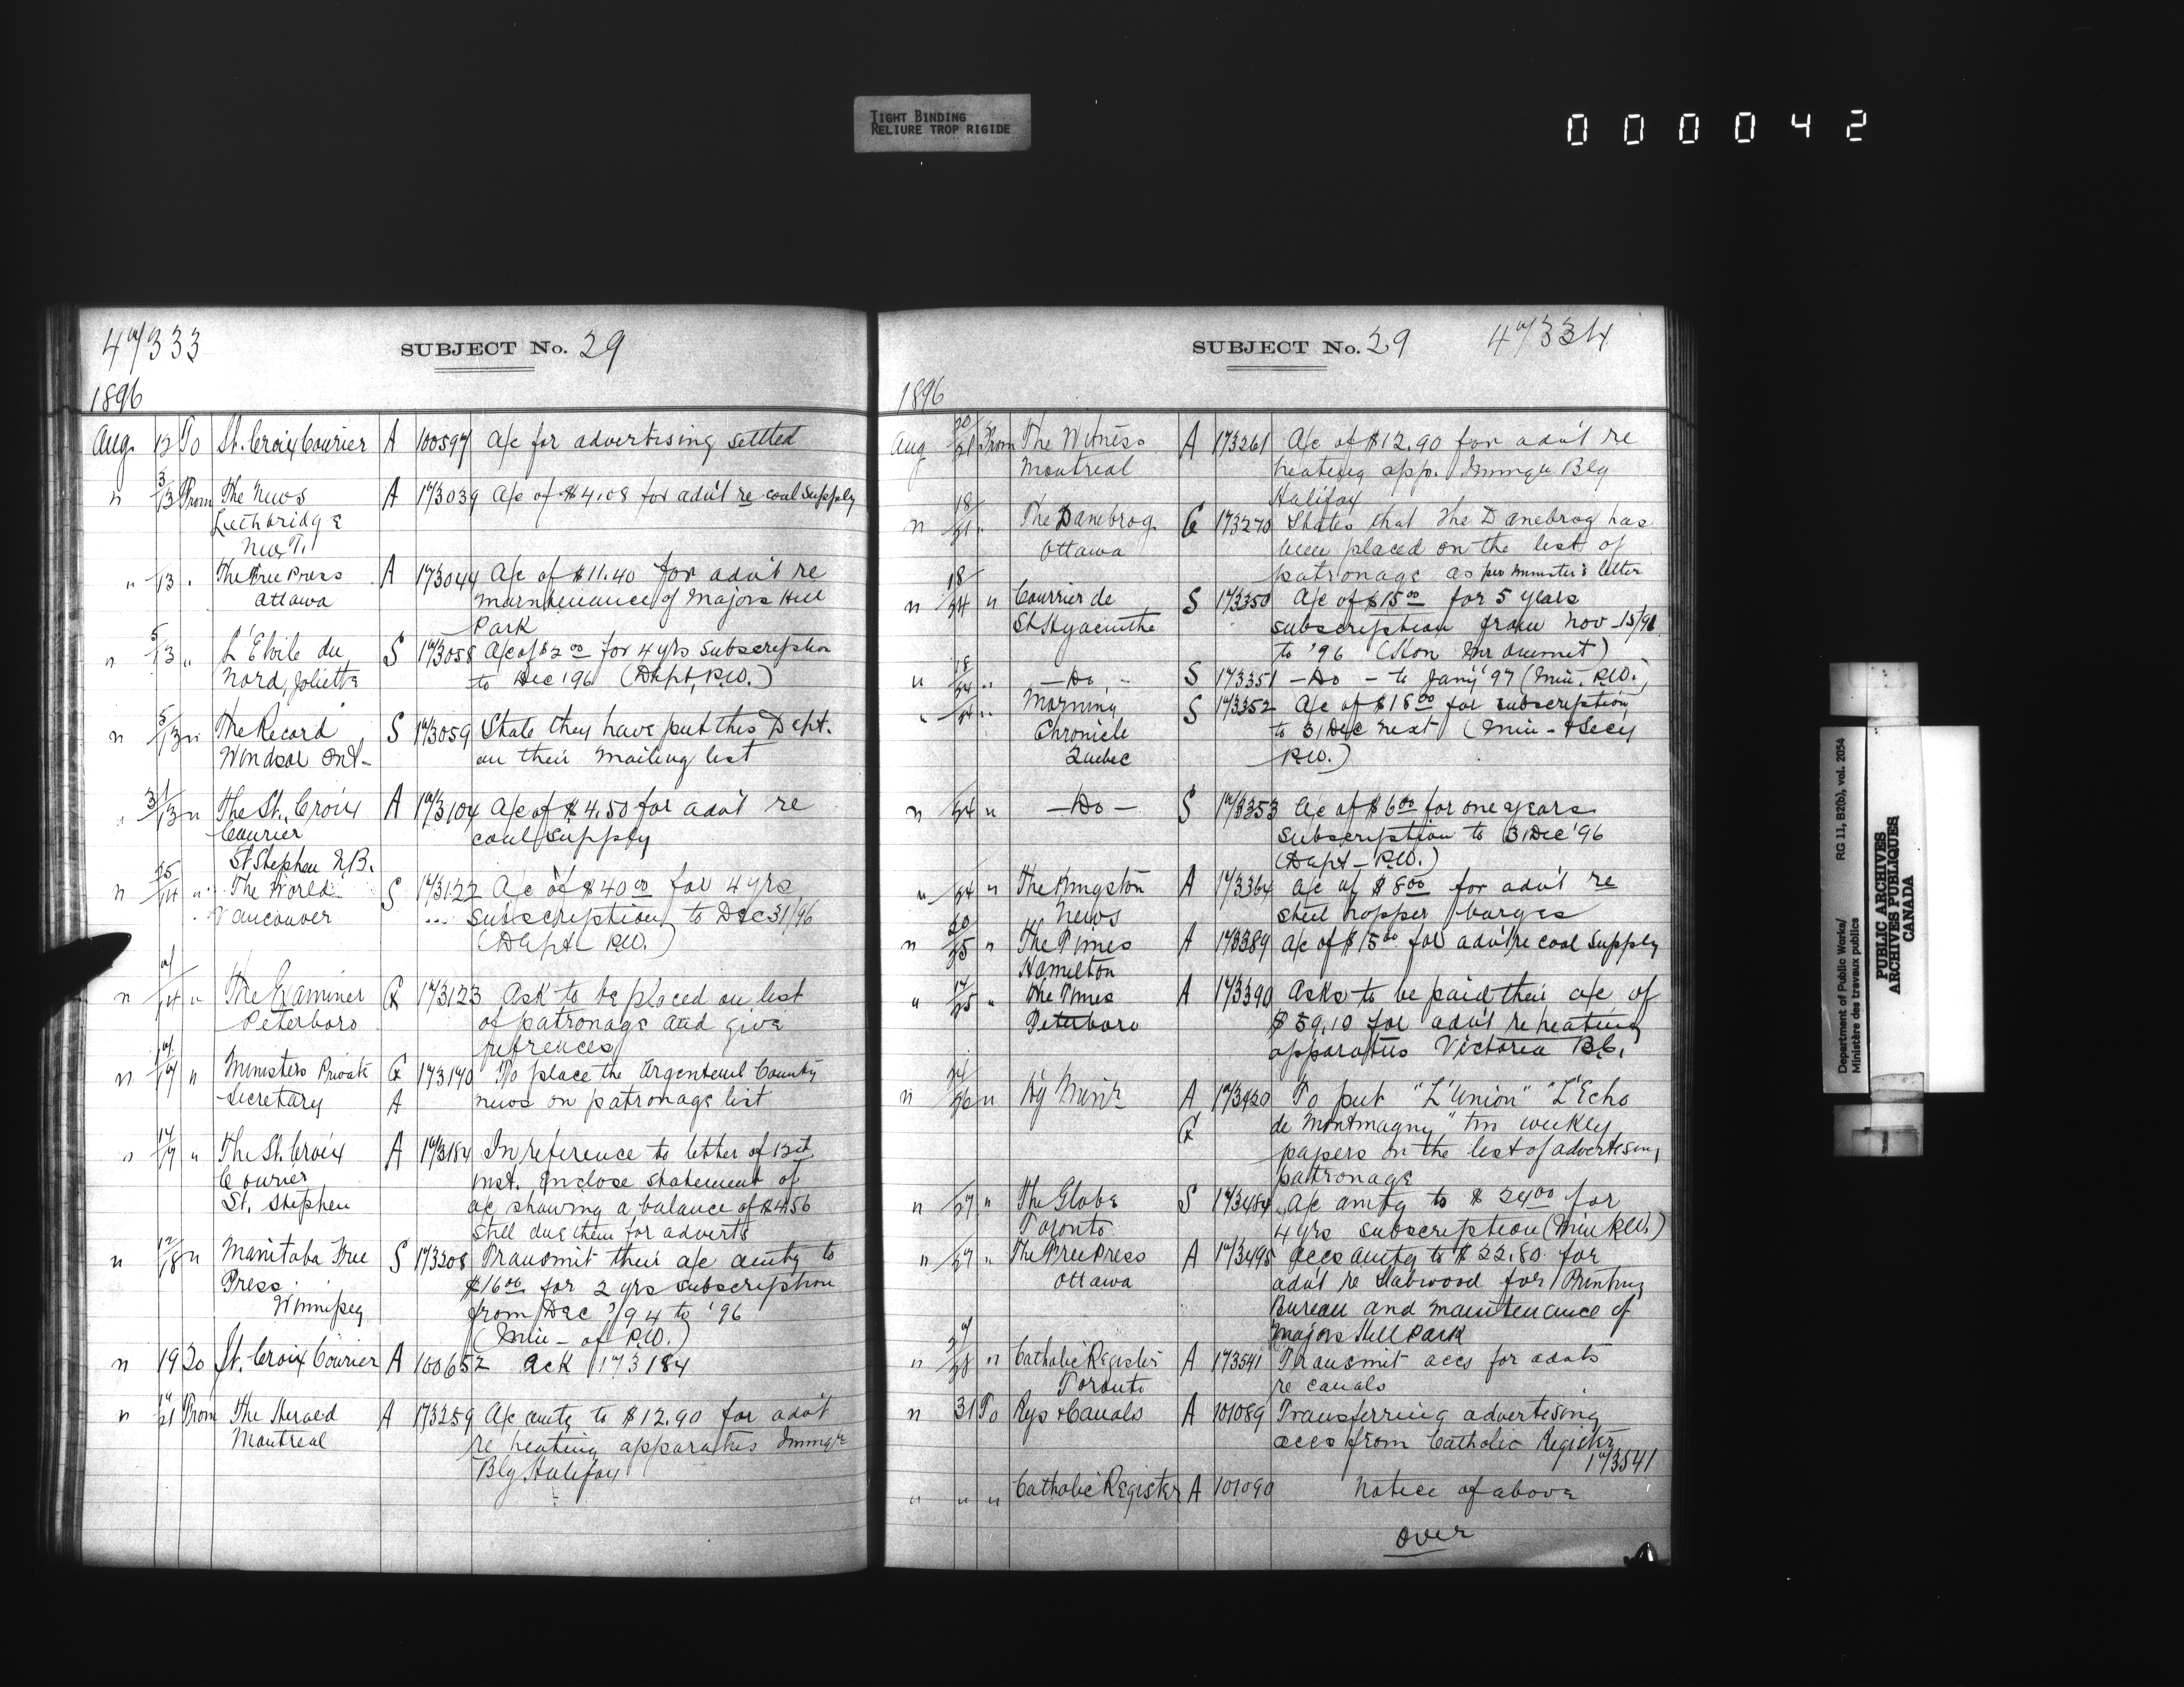 TIGHT BINDING
RELIURE TROP RIGIDE
000042
47/333
SUBJECT No. 29
1896
Aug. 12 To St. Croix Courier A 100597 A/c for advertising settled
" 3/13 From The News A 173039 A/c of $4.08 for adv't re coal supply
Lethbridge
N.W.T.
" 13 " The Free Press A 173044 A/c of $11.40 for adv't re
Ottawa maintenance of Majors Hill
Park
" 5/13 " L'Etoile du S 173058 A/c of $2 00 for 4 yrs subscription
Nord, Joliette to Dec '96 (Dept. P.W.)
" 5/13 " The Record S 173059 State they have put this Dept.
Windsor Ont- on their mailing list
" 31/13 " The St. Croix A 173104 A/c of $4.50 for adv't re
Courier coal supply
St Stephen N.B.
" 14 " The World S 173122 A/c of $40 00 for 4 yrs
Vancouver subscription to Dec 31/96
(Dept- P.W.)
" 14 " The Examiner G 173123 Ask to be placed on list
Peterboro of patronage and give
refrences
" 17 " Ministers Private G 173170 To place the Argenteuil County
Secretary A news on patronage list
" 14/17 " The St. Croix A 173184 In reference to letter of 12th
Courier inst. Enclose statement of
St. Stephen a/c showing a balance of $4.56
still due them for adverts
" 12/18 " Manitoba Free S 173208 Transmit their a/c amtg to
Press $16 00 for 2 yrs subscription
Winnipeg from Dec '94 to '96
(Min- of P.W.)
" 19 To St. Croix Courier A 100652 Ack 173184
" 21 From The Herald A 173259 A/c amtg to $12.90 for adv't
Montreal re heating apparatus Immgrn
Blg Halifax
SUBJECT No. 29 47/334
1896
Aug 20/21 From The Witness A 173261 A/c of $12.90 for adv't re
Montreal heating app. Immgn Blg
Halifax
" 18/21 " The Danebrog G 173270 States that the Danebrog has
Ottawa been placed on the list of
patronage as per Minister's letter
" 18/24 " Courrier de S 173350 A/c of $15 00 for 5 years
St Hyacinthe subscription from Nov-15/91
to '96 (Hon Mr Ouimet)
" 18/24 " -Do- S 173351 -Do- to Jan'y '97 (Min. P.W.)
" 24 " Morning S 173352 A/c of $18 00 for subscription
Chronicle to 31 Dec next (Min- & Secy
Quebec P.W.)
" 24 " -Do- S 173353 A/c of $6 00 for one years
subscription to 31 Dec '96
(Dept- P.W.)
" 24 " The Kingston A 173364 A/c of $8 00 for adv't re
News steel hopper barges
" 20/25 " The Times A 173389 A/c of $15 00 for adv't re coal supply
Hamilton
" 25 " The Times A 173390 Asks to be paid their a/c of
Peterboro $59.10 for adv't re heating
apparatus Victoria B.C.
" 26 " A 173420 To put "L'Union" "L'Echo
G de Montmagny" two weekly
papers on the list of advertising
patronage
" 27 " The Globe S 173484 A/c amtg to $24 00 for
Toronto 4 yrs subscription (Min P.W.)
" 27 " The Free Press A 173495 accs amtg to $22.80 for
Ottawa adv't re Slabwood for Printing
Bureau and maintenance of
Majors Hill Park
" 27/28 " Catholic Register A 173541 Transmit accs for advts
Toronto re canals
" 31 To Rys & Canals A 101089 Transferring advertising
accs from Catholic Register
173541
" " " Catholic Register A 101090 Notice of above
Over
Department of Public Works/
Ministère des travaux publics
RG 11, B2(b), vol. 2054
PUBLIC ARCHIVES
ARCHIVES PUBLIQUES
CANADA